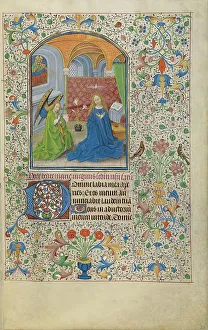 Domine labia mea ape
ries. Et os meum an
nunciabit laudem tua
Deus in adiutoriu
meum intende. Domine